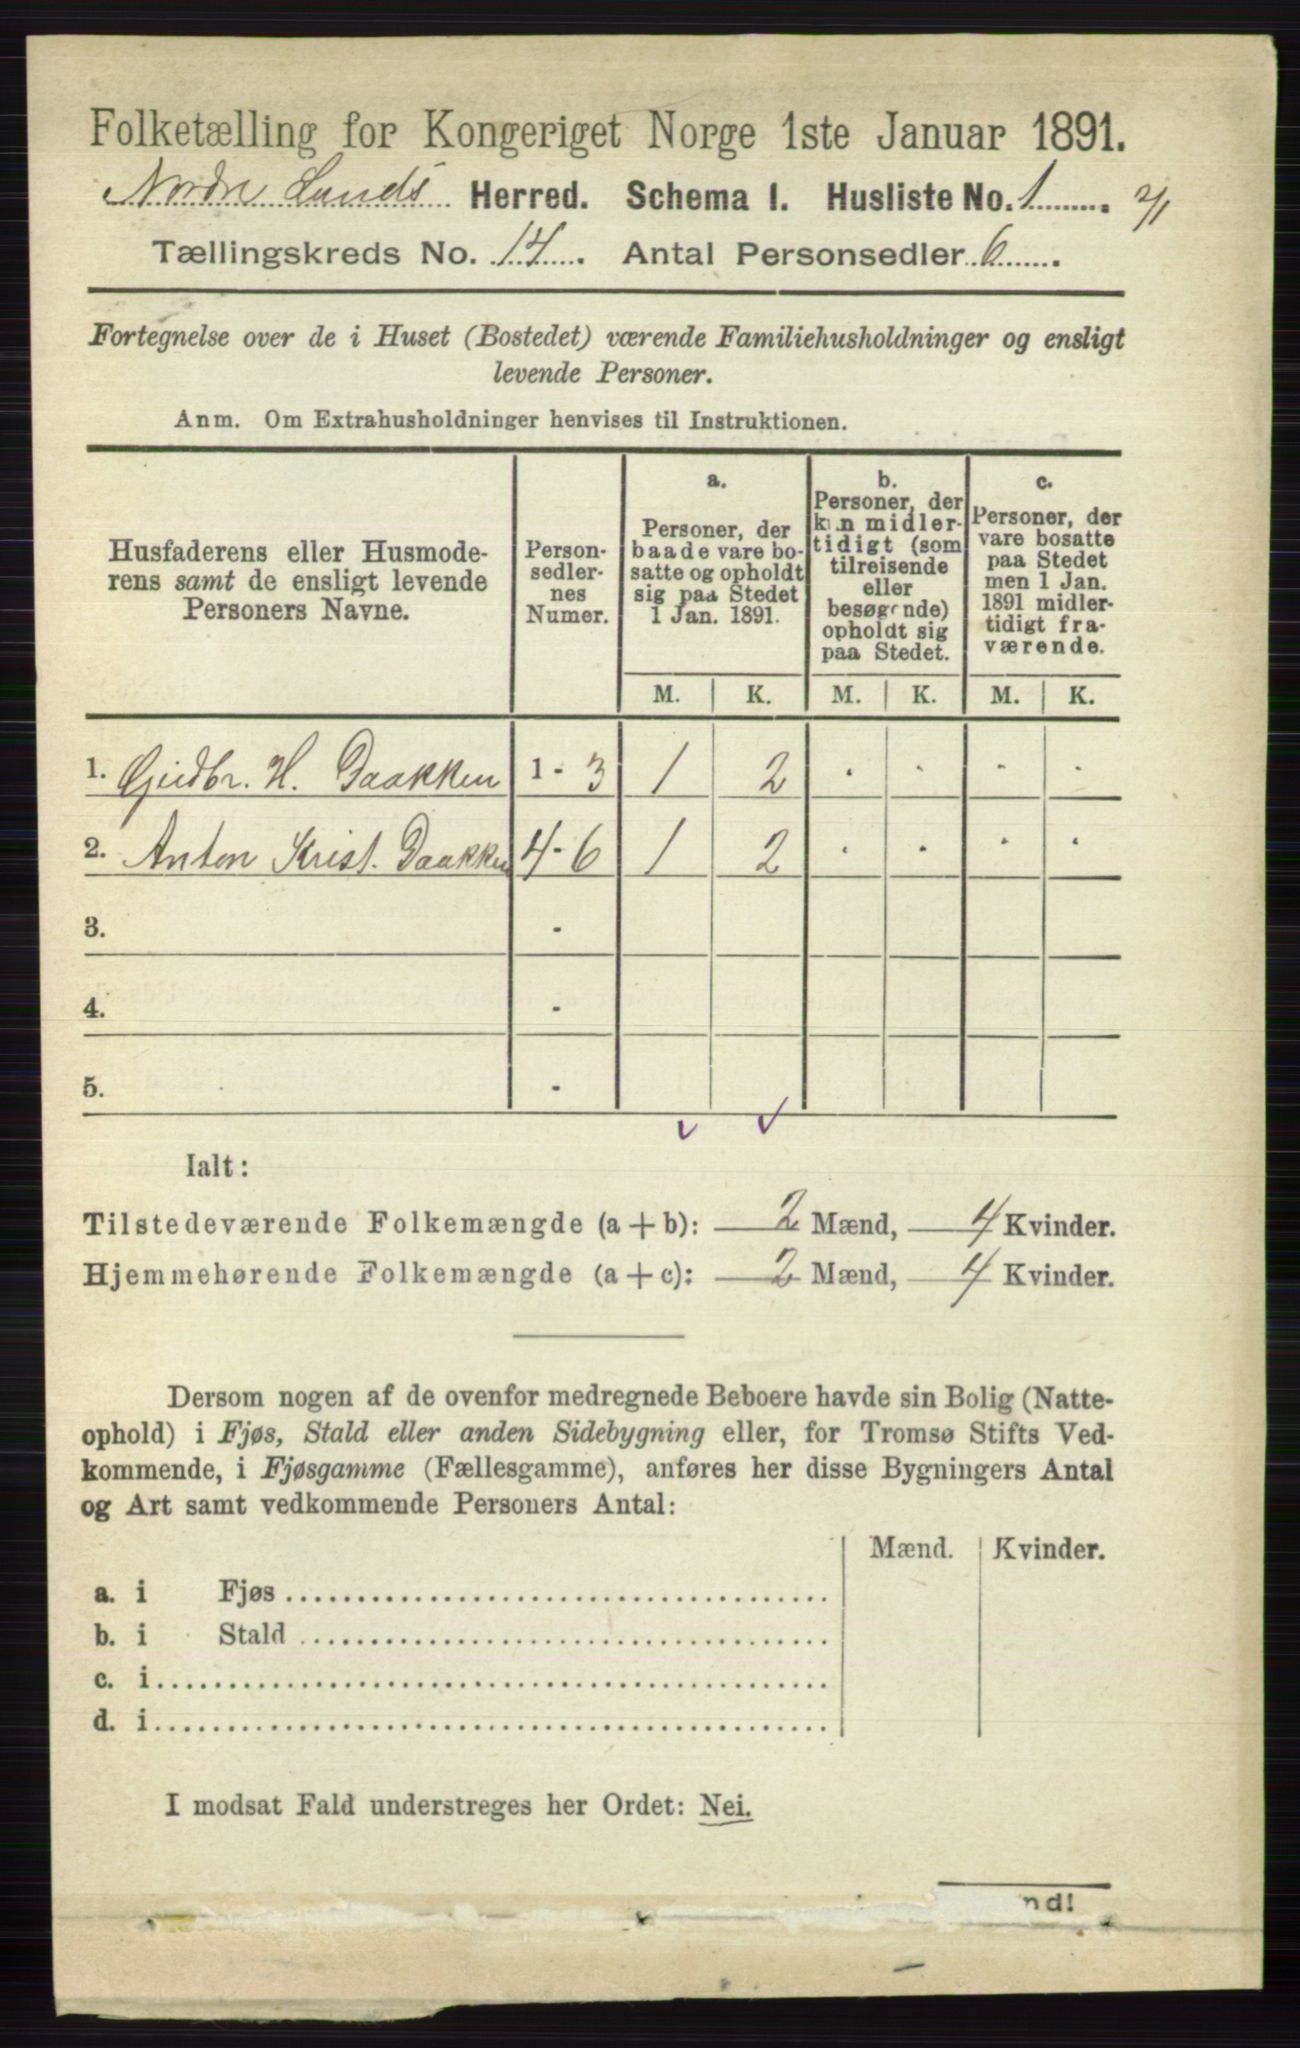 Folketælling for Kongeriget Norge 1ste Januar 1891.
Nordre Lands Herred. Schema I. Husliste No. 1 2/1
Tællingskreds No. 14. Antal Personsedler 6
Fortegnelse over de i Huset (Bostedet) værende Familiehusholdninger og ensligt
levende Personer.
Anm. Om Extrahusholdninger henvises til Instruktionen.
Husfaderens eller Husmode-
rens samt de ensligt levende
Personers Navne.
Person-
sedler-
nes
Numer.
a.
Personer, der
baade vare bo-
satte og opholdt
sig paa Stedet
1 Jan. 1891.
b.
Personer, der
kun midler-
tidigt (som
tilreisende
eller
besøgende)
opholdt sig
paa Stedet.
c.
Personer, der
vare bosatte
paa Stedet
men 1 Jan.
1891 midler-
tidigt fra-
værende.
M. K. M. K. M. K.
1. Gudbr. H. Daakken 1 - 3 1 2 · · · ·
2. Anton Krist. Daakken 4 - 6 1 2 · · · ·
3. -
4. -
5. -
Ialt:
Tilstedeværende Folkemængde (a + b): 2 Mænd, 4 Kvinder.
Hjemmehørende Folkemængde (a + c): 2 Mænd, 4 Kvinder.
Dersom nogen af de ovenfor medregnede Beboere havde sin Bolig (Natte-
ophold) i Fjøs, Stald eller anden Sidebygning eller, for Tromsø Stifts Ved-
kommende, i Fjøsgamme (Fællesgamme), anføres her disse Bygningers Antal
og Art samt vedkommende Personers Antal:
Mænd. Kvinder.
a. i Fjøs
b. i Stald
c. i
d. i
I modsat Fald understreges her Ordet: Nei.
nd!